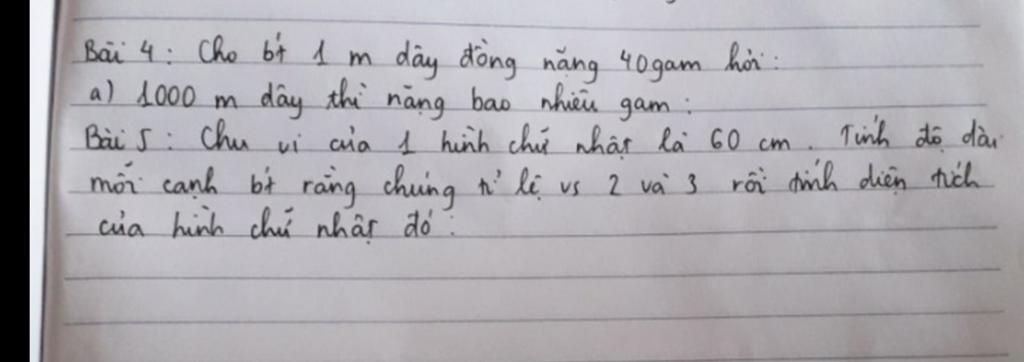 Bài 4 : Cho bt 1 m dây đồng nặng 40gam hỏi :
a) 1000 m dây thì nặng bao nhiêu gam :
Bài 5 : Chu vi của 1 hình chữ nhật là 60 cm . Tính độ dài
mỗi cạnh bt rằng chúng tỉ lệ vs 2 và 3 rồi tính diện tích
của hình chữ nhật đó .